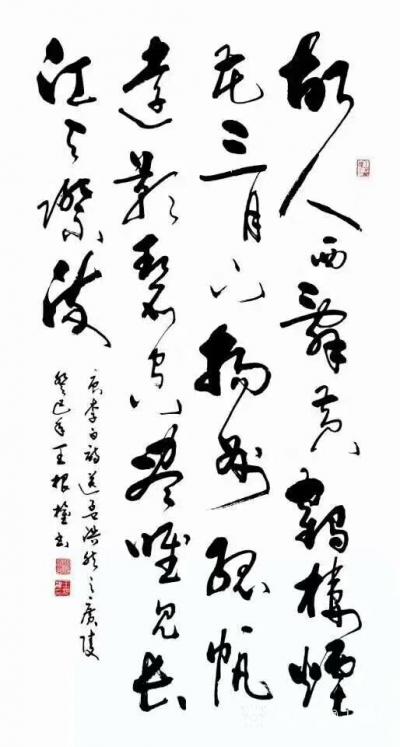 故人西辭黄鶴樓煙
花三月下揚州孤帆
遠影碧空盡唯見長
江天際流
唐李白詩送孟浩然之廣陵
癸巳年王根權書